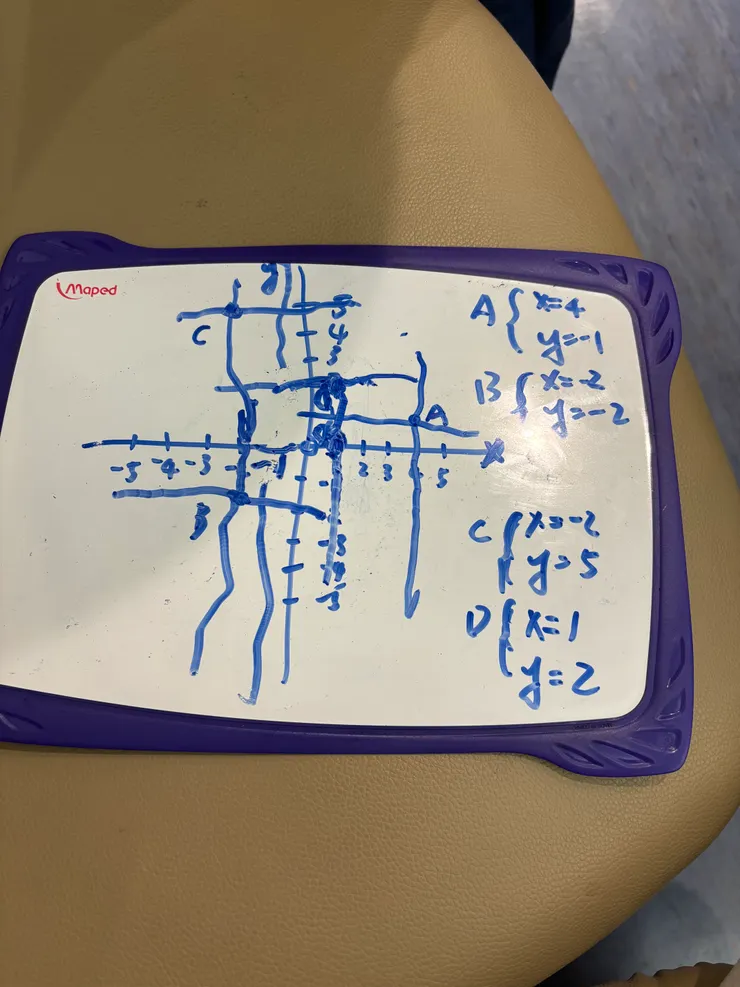 Maped
y
5
4
3
C
A
-5 -4 -3 -1 2 3 5 x
B
-3
-4
-5
A { x=4
y=-1
B { x=-2
y=-2
C { x=-2
y=5
D { x=1
y=2